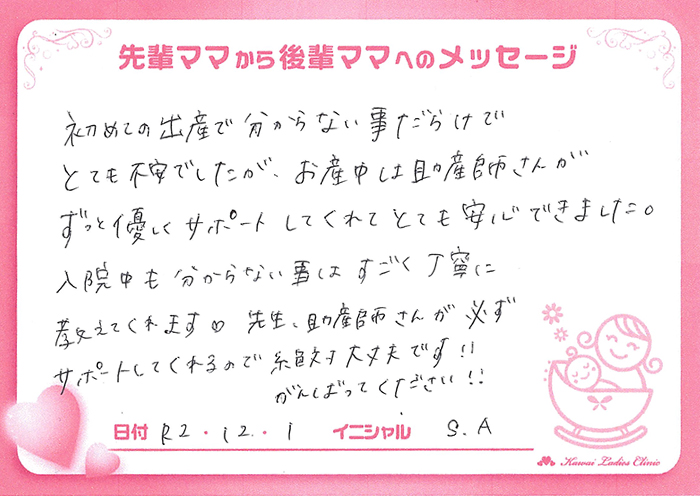 先輩ママから後輩ママへのメッセージ
初めての出産で分からない事だらけで
とても不安でしたが、お産中は助産師さんが
ずっと優しくサポートしてくれてとても安心できました。
入院中も分からない事はすごく丁寧に
教えてくれます♡ 先生、助産師さんが必ず
サポートしてくれるので絶対大丈夫です!!
がんばってください!!
日付 R2・12・1 イニシャル S.A
Kawai Ladies Clinic